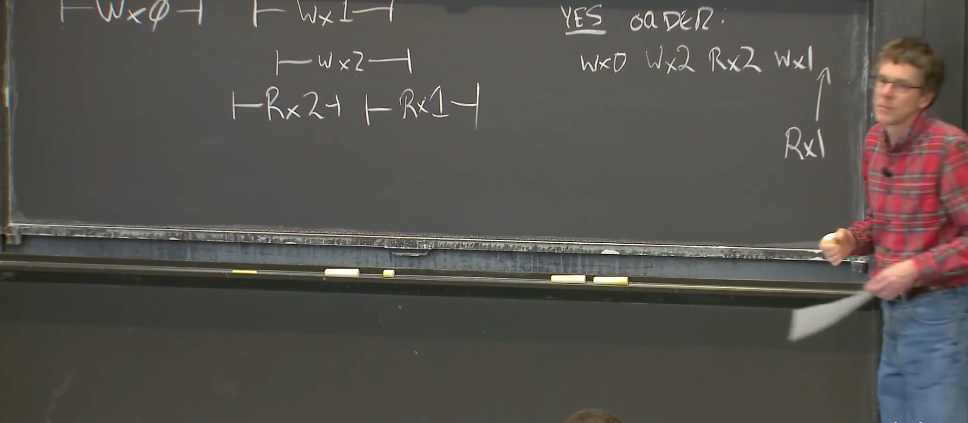 |-Wx0-| |-Wx1-|
|-Wx2-|
|-Rx2-| |-Rx1-|
YES ORDER:
Wx0 Wx2 Rx2 Wx1
Rx1